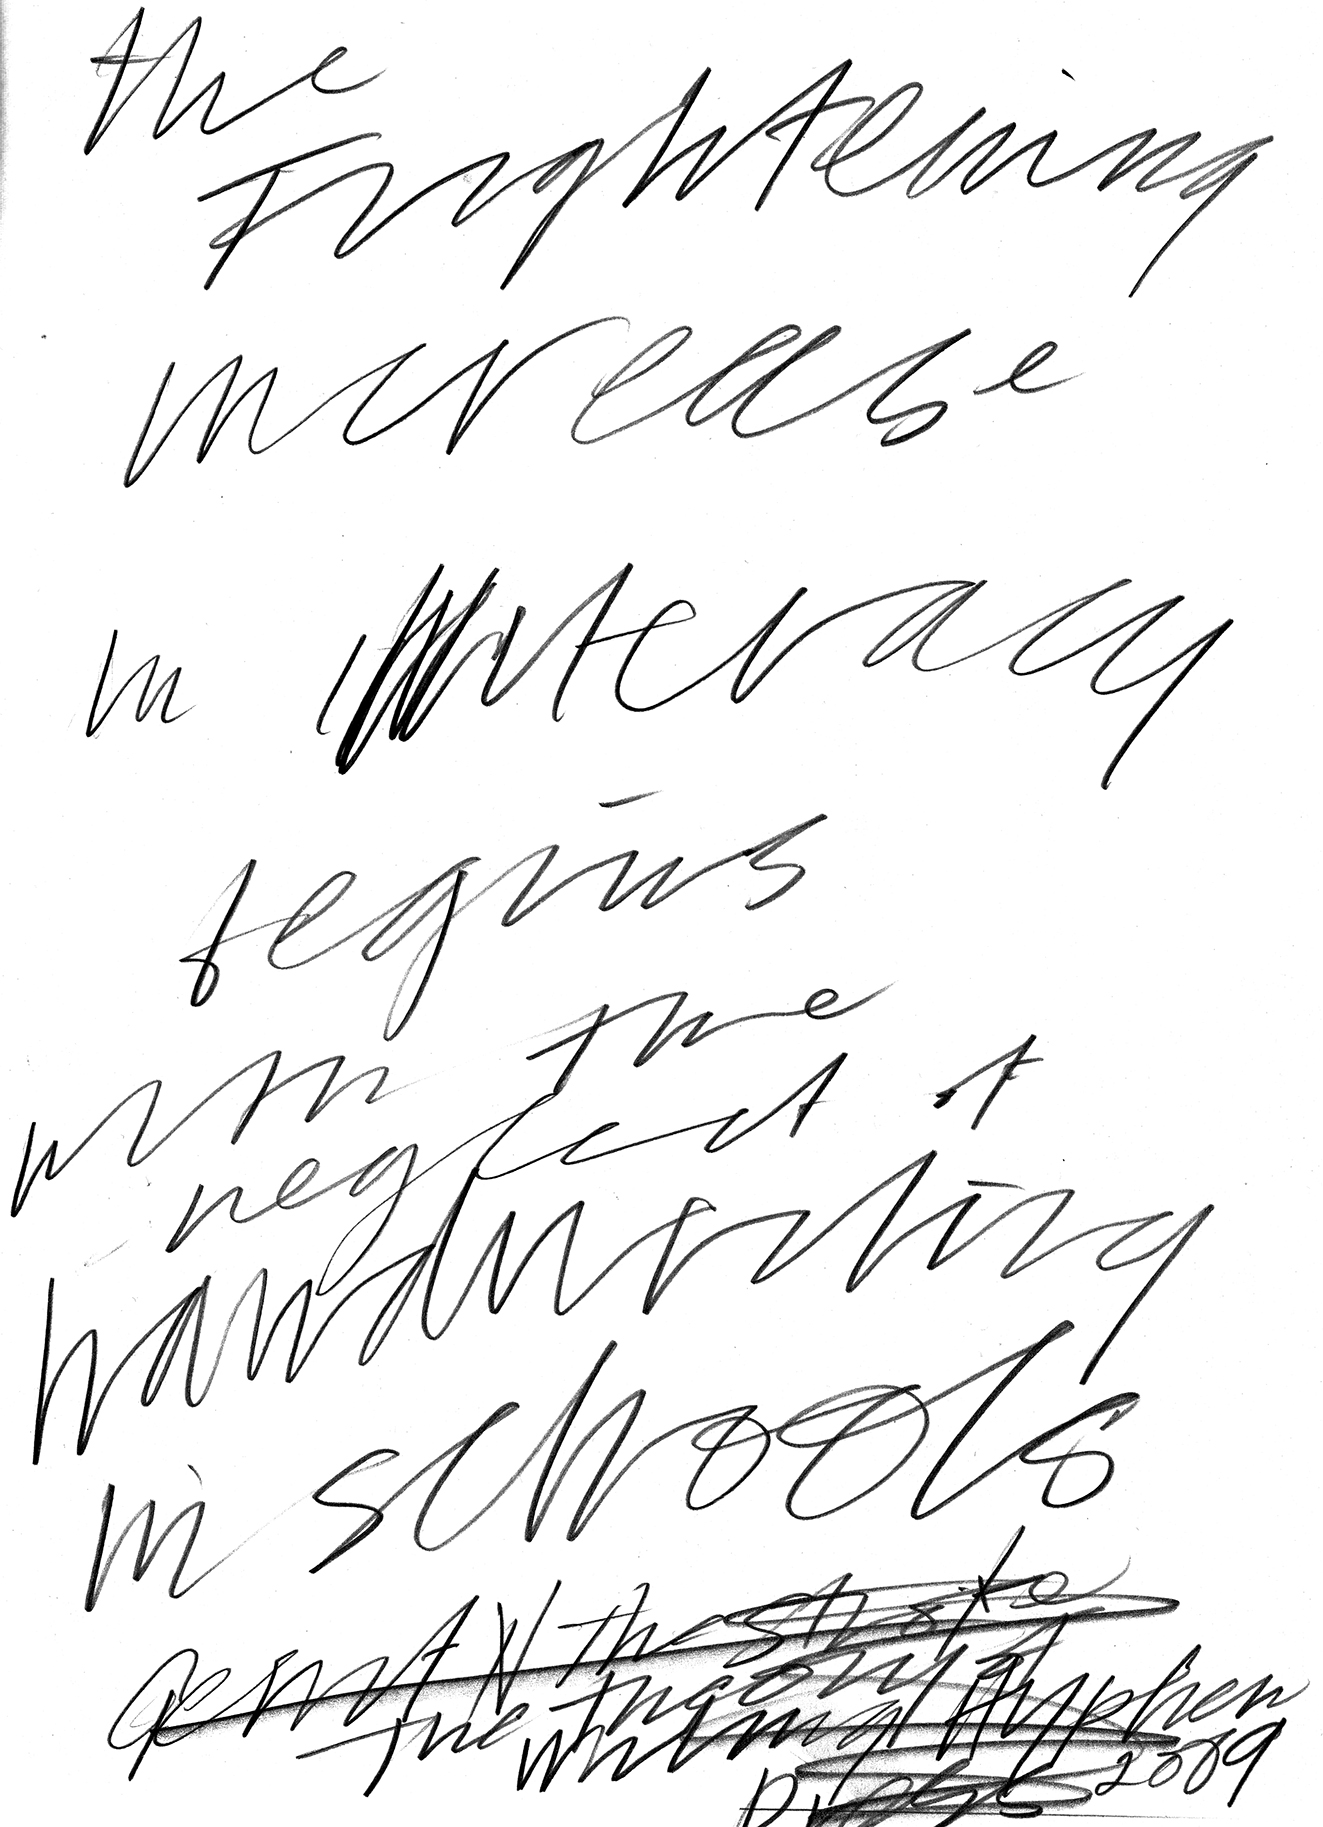 the
Frightening
increase
in illiteracy
begins
with the
neglect of
handwriting
in schools
Gerrit N the stroke
the theory of
writing Hyphen
Press 2009